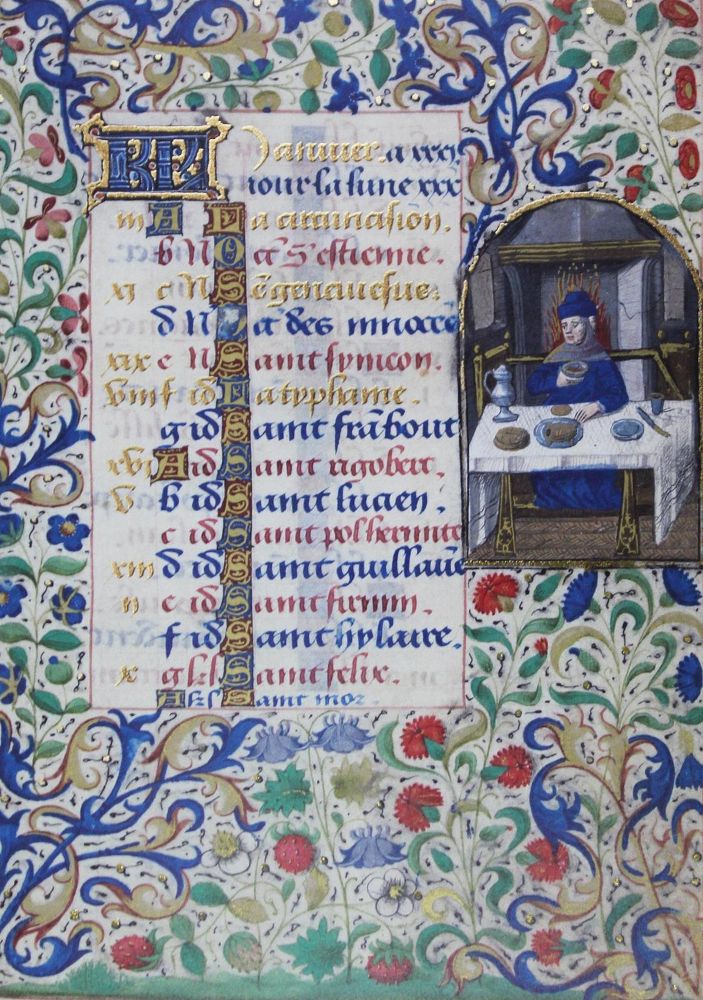 KL Januier. a xxxi
iour la lune xxx
iii A La circuncision.
b N Oct S' estienne.
xi c N Ste geneuiesue.
d N Oct des innocens
xix e N Saint symeon.
viii f id La typhame.
g id Saint frābout
xvi A id Saint rigobert.
v b id Saint lucien.
c id Saint pol hermite
xiii d id Saint guillāue
ii e id Saint firmin.
f id Saint hylaire.
x g kl Saint felix.
A kl Saint mor.